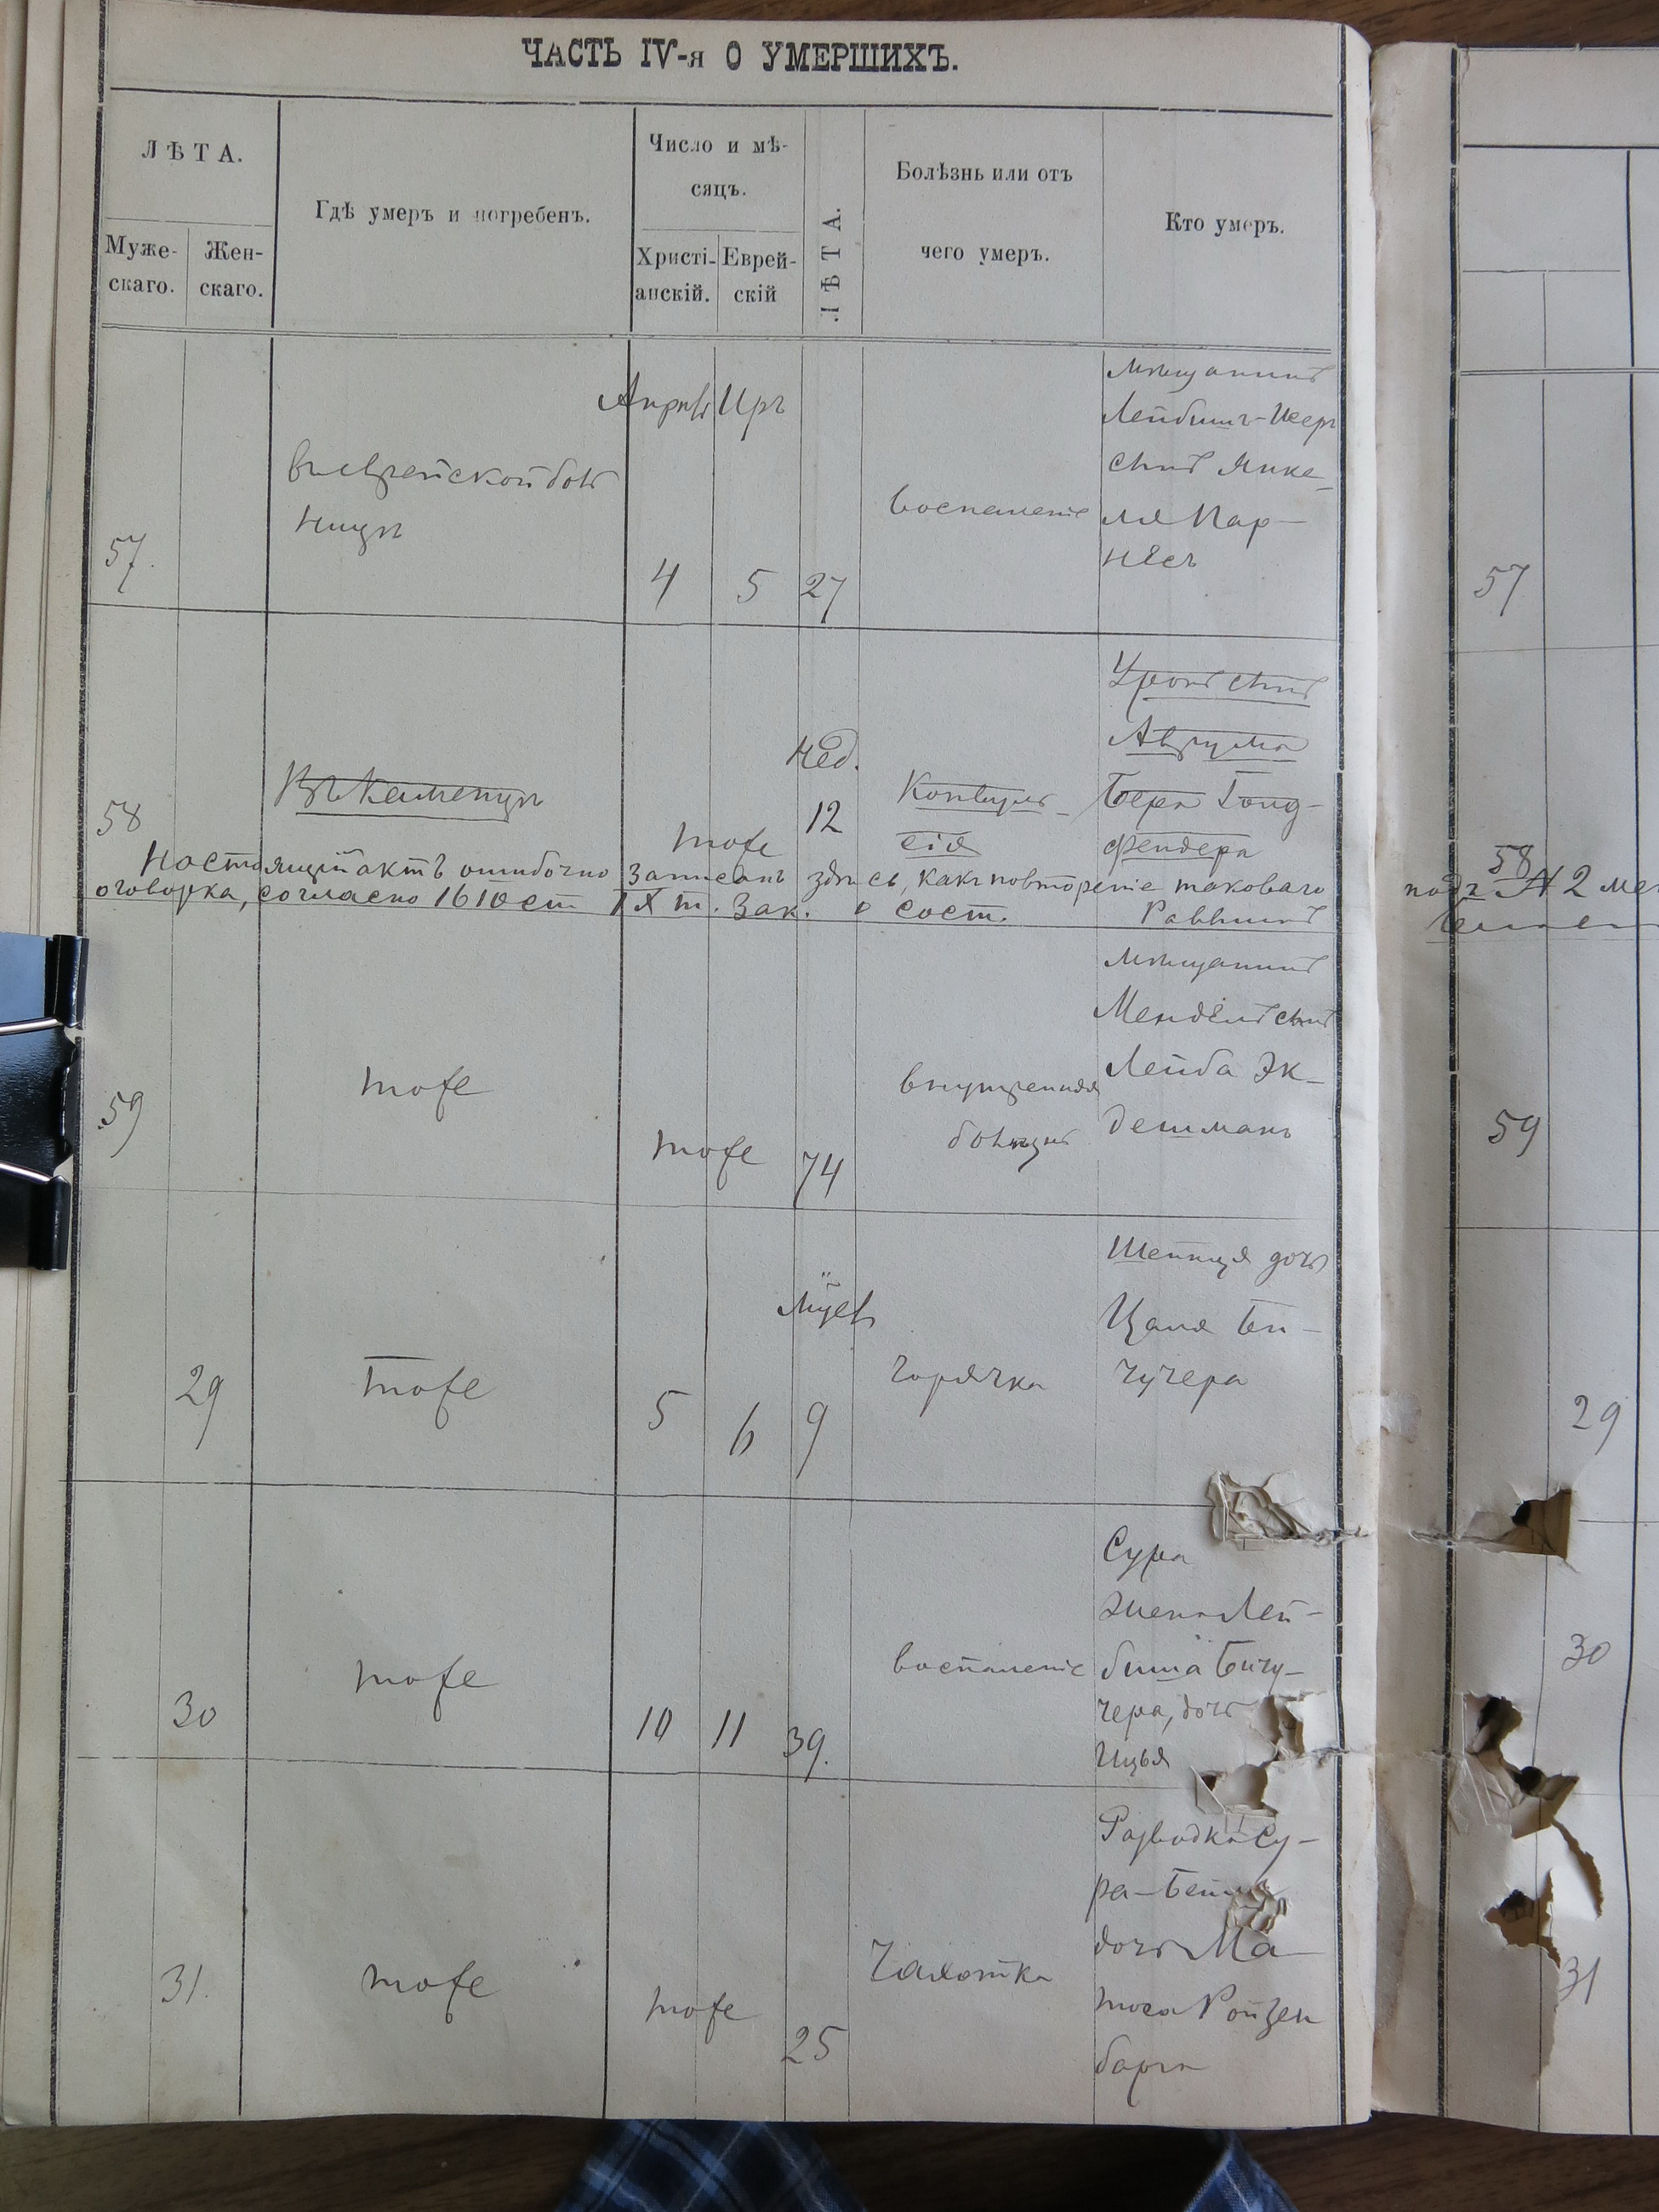 ЧАСТЬ IV-я О УМЕРШИХЪ.
ЛѢТА.
Муже-
скаго.
Жен-
скаго.
Гдѣ умеръ и погребенъ.
Число и мѣ-
сяцъ.
Христі-
анскій.
Еврей-
скій
ЛѢТА.
Болѣзнь или отъ
чего умеръ.
Кто умеръ.
57.
въ еврейской боль
ницѣ
Апрѣль
4
Иръ
5
27
воспаленіе
мѣщанинъ
Лейбишъ-
сынъ Янке-
ля Пар-
нёсъ
57
58
Въ Каменцѣ
тоже
Нед.
12
Конвуль-
сія
сынъ
Аврума
Бера Гольд-
фендера
58
Настоящій актъ ошибочно записанъ здѣсь, какъ повтореніе таковаго подъ № 2
оговорка, согласно 1610 ст IX т. Зак. о сост. Раввинъ
59
тоже
тоже
74
внутренная
болѣзнь
мѣщанинъ
Мендель сынъ
Лейба Эк-
дешманъ
59
29
тоже
5
6
9
горячка
дочь
Цаля Би-
чучера
29
30
тоже
10
11
39.
воспаленіе
Сура
жена Лей-
биша Бичу-
чера, дочь
Ицья
30
31.
тоже
тоже
25
Чахотка
Разводка Су-
ра-
дочь Ма-
тоса Ройзен
барга
31